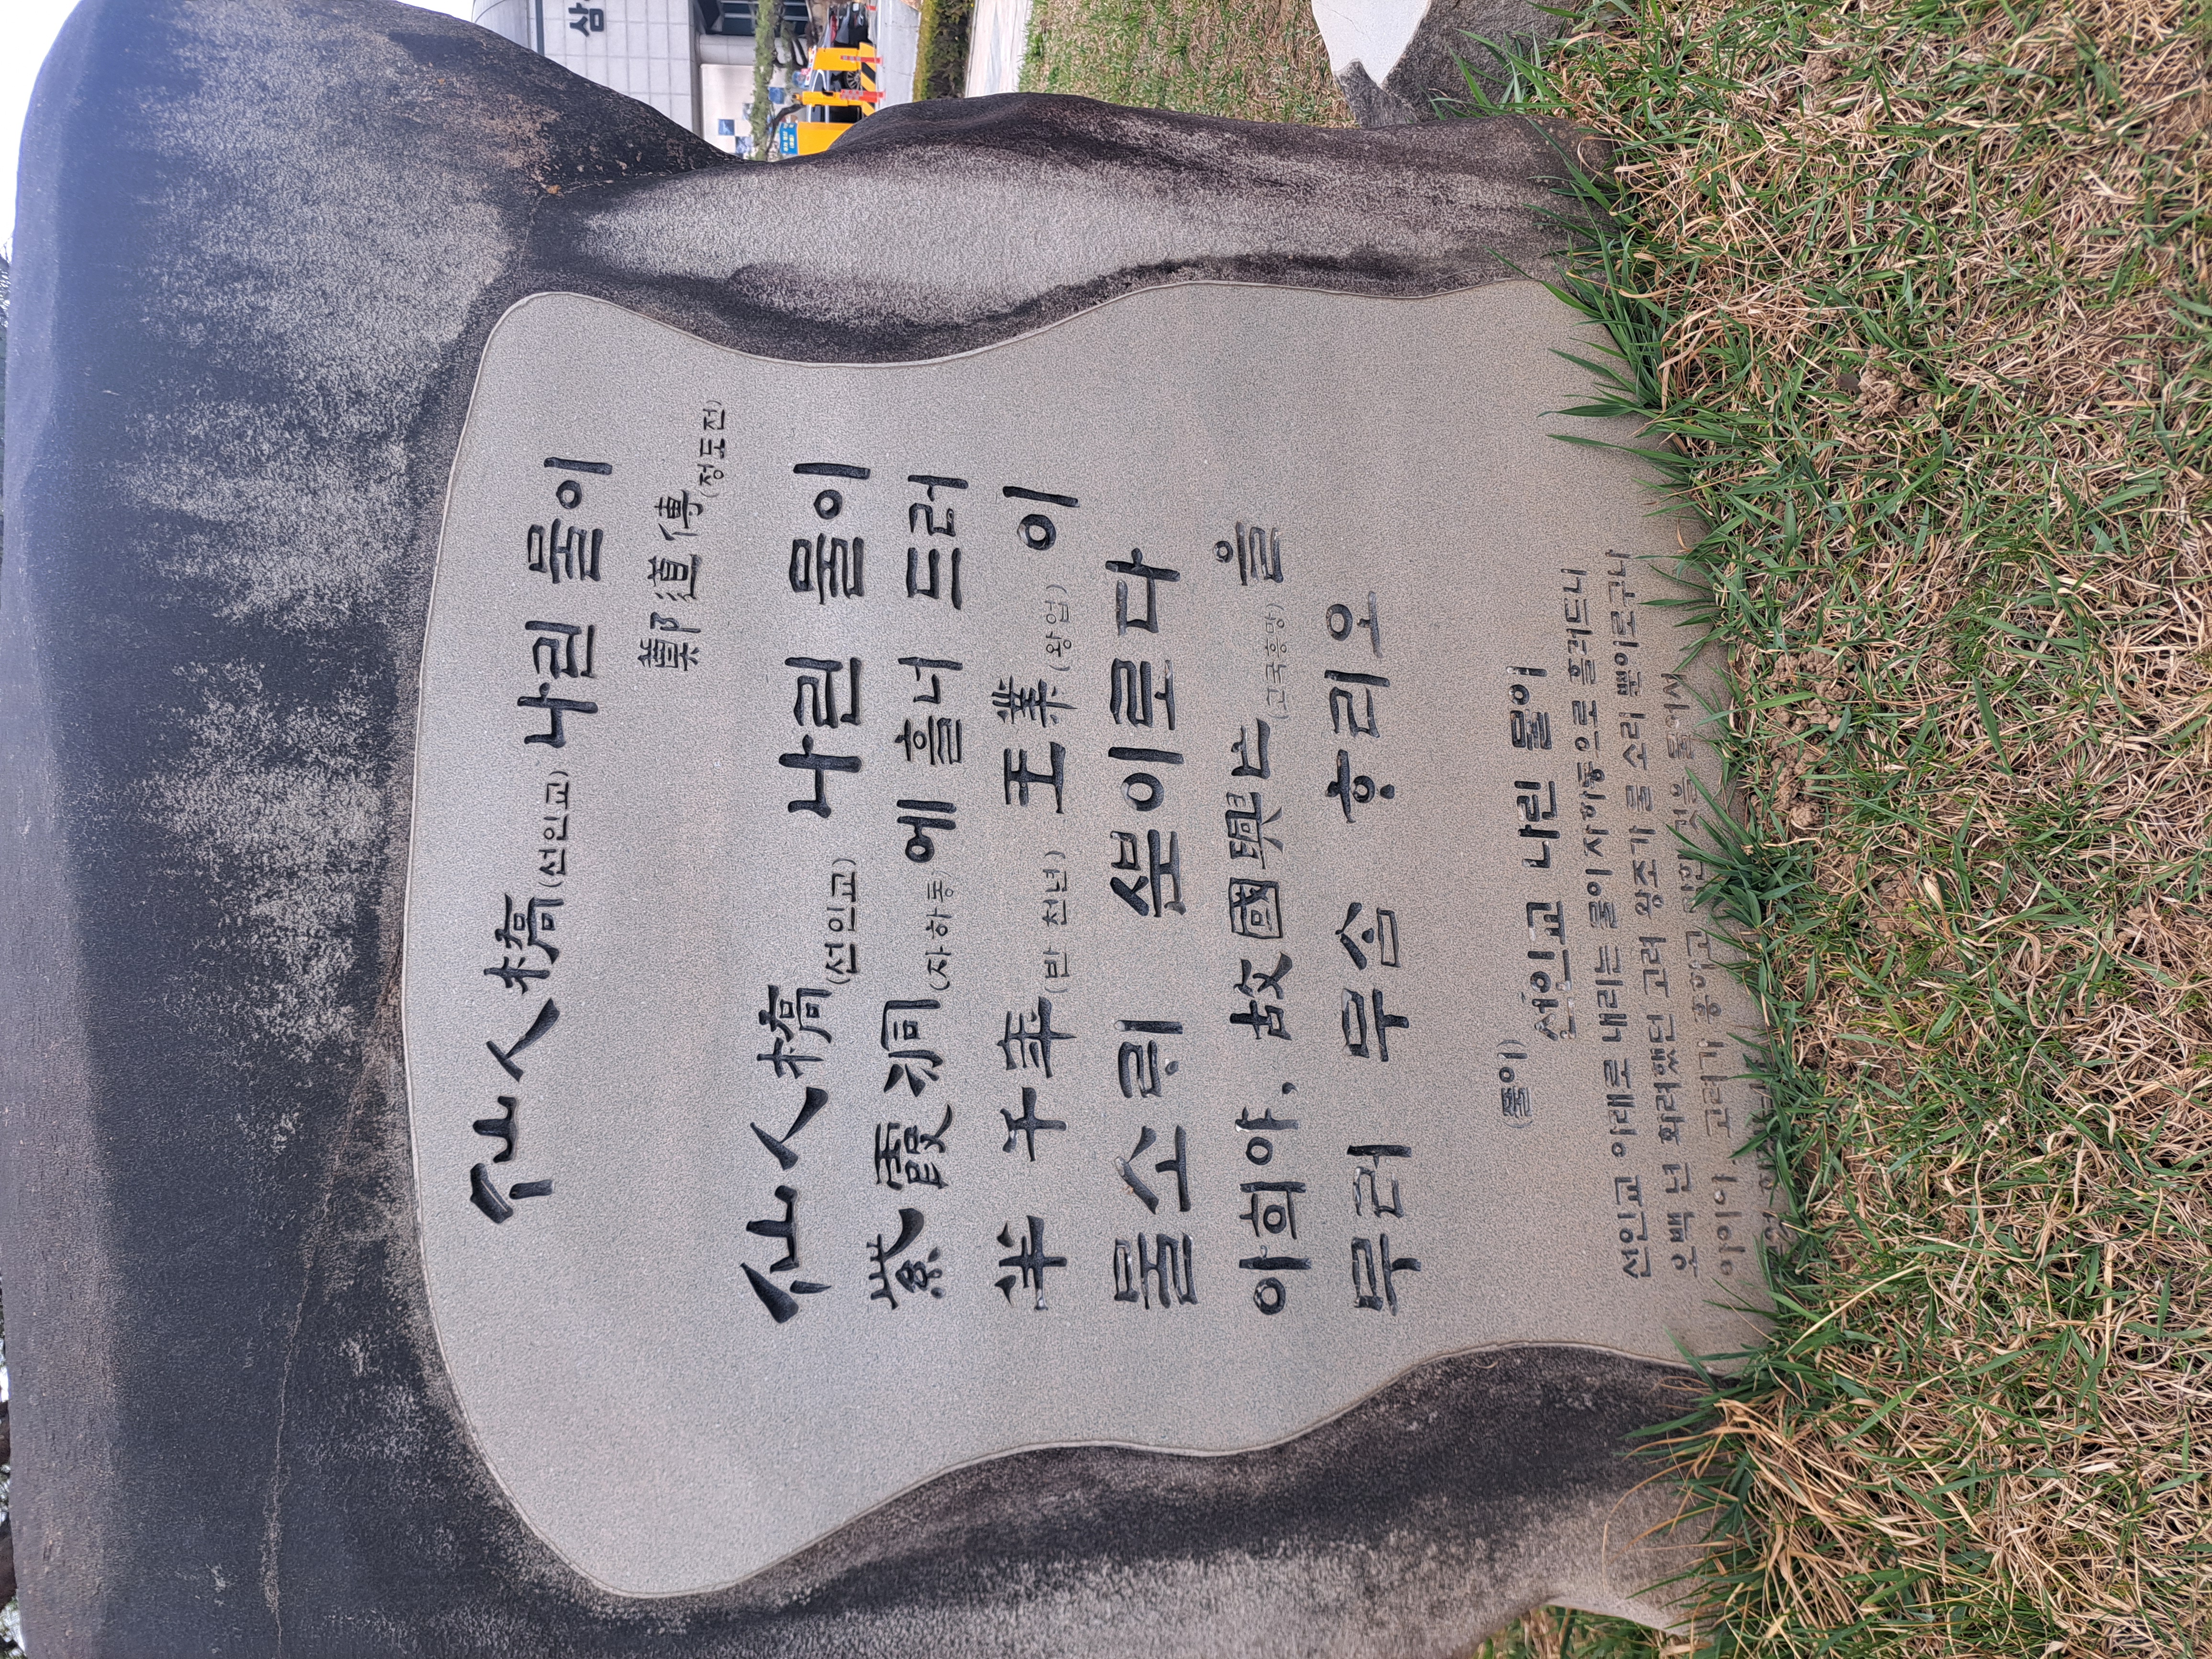 삼
仙人橋(선인교) 나린 물이
鄭道傳(정도전)
仙人橋(선인교) 나린 물이
紫霞洞(자하동)에 흘너 드러
半千年(반 천년) 王業(왕업)이
물소릐 ᄲᅮᆫ이로다
아희야, 故國興亡(고국흥망)을
무러 무슴 ᄒᆞ리오
(풀이)
선인교 나린 물이
선인교 아래로 내리는 물이 자하동으로 흘러드니
오백 년 화려했던 고려 왕조가 물 소리 뿐이로구나
아이야, 고려가 흥하고 망한 것을 물어서